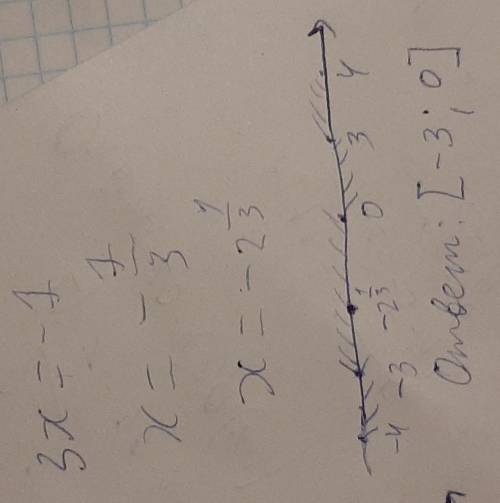 3x = -1
x = -1/3
x = -2 1/3
-4 -3 -2 1/3 0 3 4
Ответ: [-3; 0]